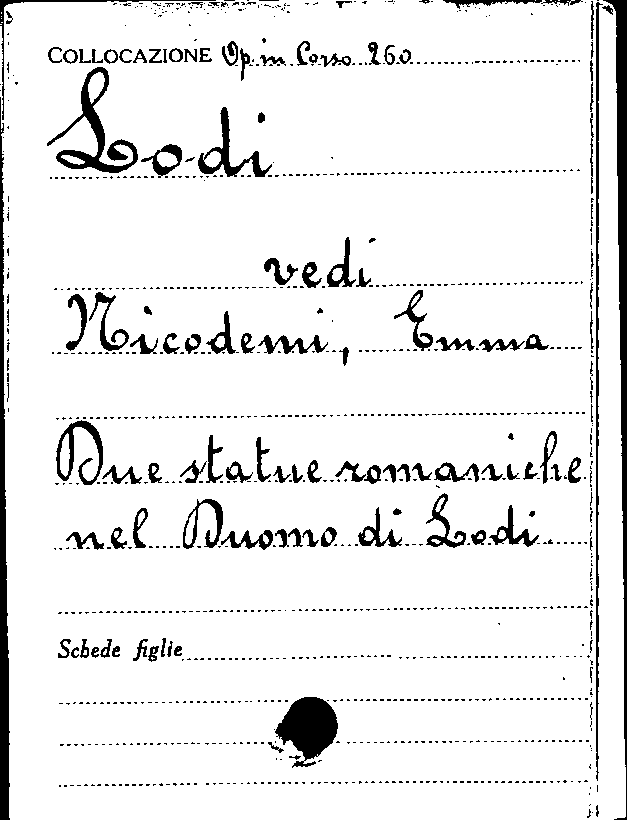 COLLOCAZIONE Op. in Corso 260
Lodi
vedi
Nicodemi, Emma
Due statue romaniche
nel Duomo di Lodi.
Schede figlie